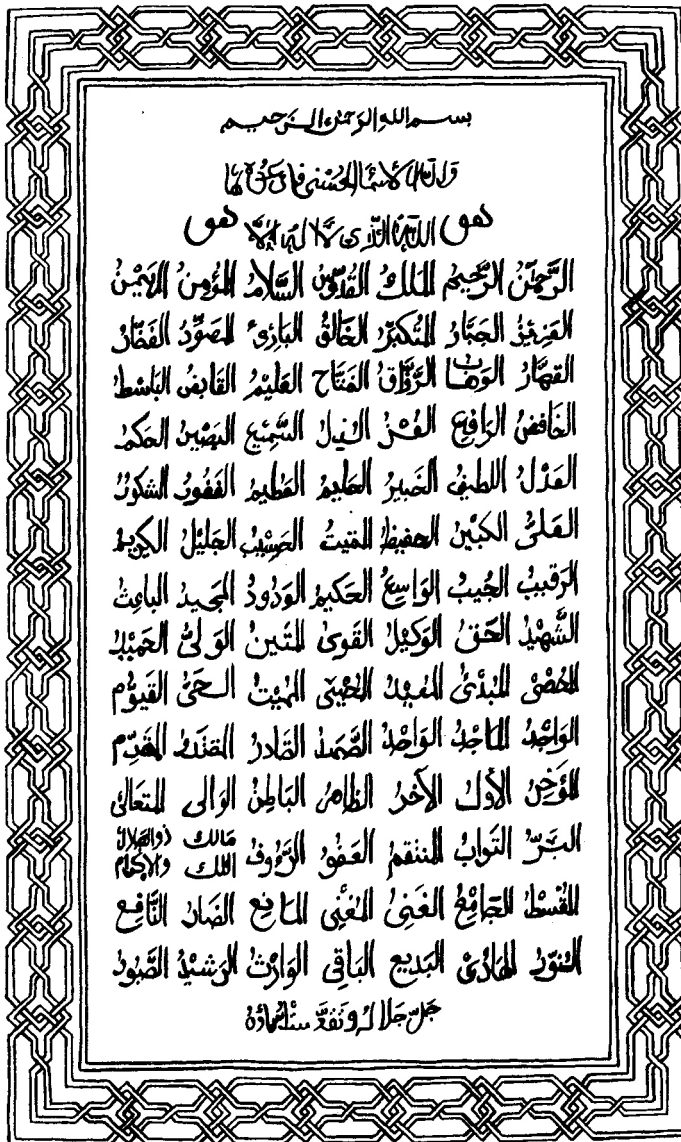 بسم الله الرحمن الرحيم
ولله الأسماء الحسنى فادعوه بها
هو الله الذى لا اله الا هو
الرَّحمنُ الرَّحيمُ المَلكُ القُدّوسُ السَّلامُ المُؤمنُ المهَيمنُ
العَزيزُ الجَبّارُ المُتكَبّرُ الخَالقُ البَارىءُ المصَوِّرُ الغَفّارُ
القهَّارُ الوَهابُ الرَّزَّاقُ الفَتّاح العَليمُ القَابضُ البَاسطُ
الخَافضُ الرَافعُ المُعزُّ المذلُ السَّميعُ البَصيرُ الحكمُ
العَدْلُ اللطيفُ الخَبيرُ الحليمُ العَظيمُ الغَفُورُ الشكورُ
العَلىُّ الكبيرُ الحفيظُ المقيتُ الحَسيْبُ الجَليلُ الكريمُ
الرَقيبُ المجيبُ الوَاسعُ الحكيمُ الوَدُودُ المجيدُ الباعثُ
الشَّهيْدُ الحَقُّ الوَكيلُ القَوىُّ المَتينُ الوَلىُّ الحَميْدُ
المُحْصى المُبْدئُ المُعيْدُ المُحْيِى المُميْتُ الحَىُّ القَيوّمُ
الوَاجْدُ المَاجدُ الوَاحْدُ الصَّمَدُ القَادرُ المقتَدرُ المقَدّمُ
المؤَخّرُ الأوَّلُ الآخرُ الظَاهرُ البَاطنُ الوَالى المتعَالى
البَرُّ التَوابُ المنتقمُ العَفوُّ الرَّءُوفُ مَالك الملك ذوالجلال والإكرام
المُقسْطُ الجَامعُ الغَنِىُّ المُغْنِى المَانعُ الضَارُّ النَّافعُ
النّورُ الهَادىْ البَديع البَاقى الوَارْثُ الرَشيْدُ الصَّبورُ
جَلّ جَلاله وتقدست أسماؤه